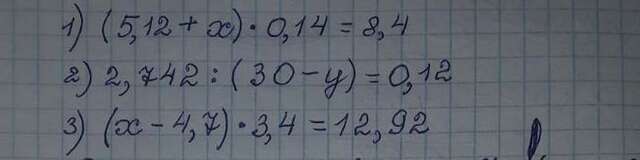 1) (5,12 + x) · 0,14 = 8,4
2) 2,742 : (30 - y) = 0,12
3) (x - 4,7) · 3,4 = 12,92